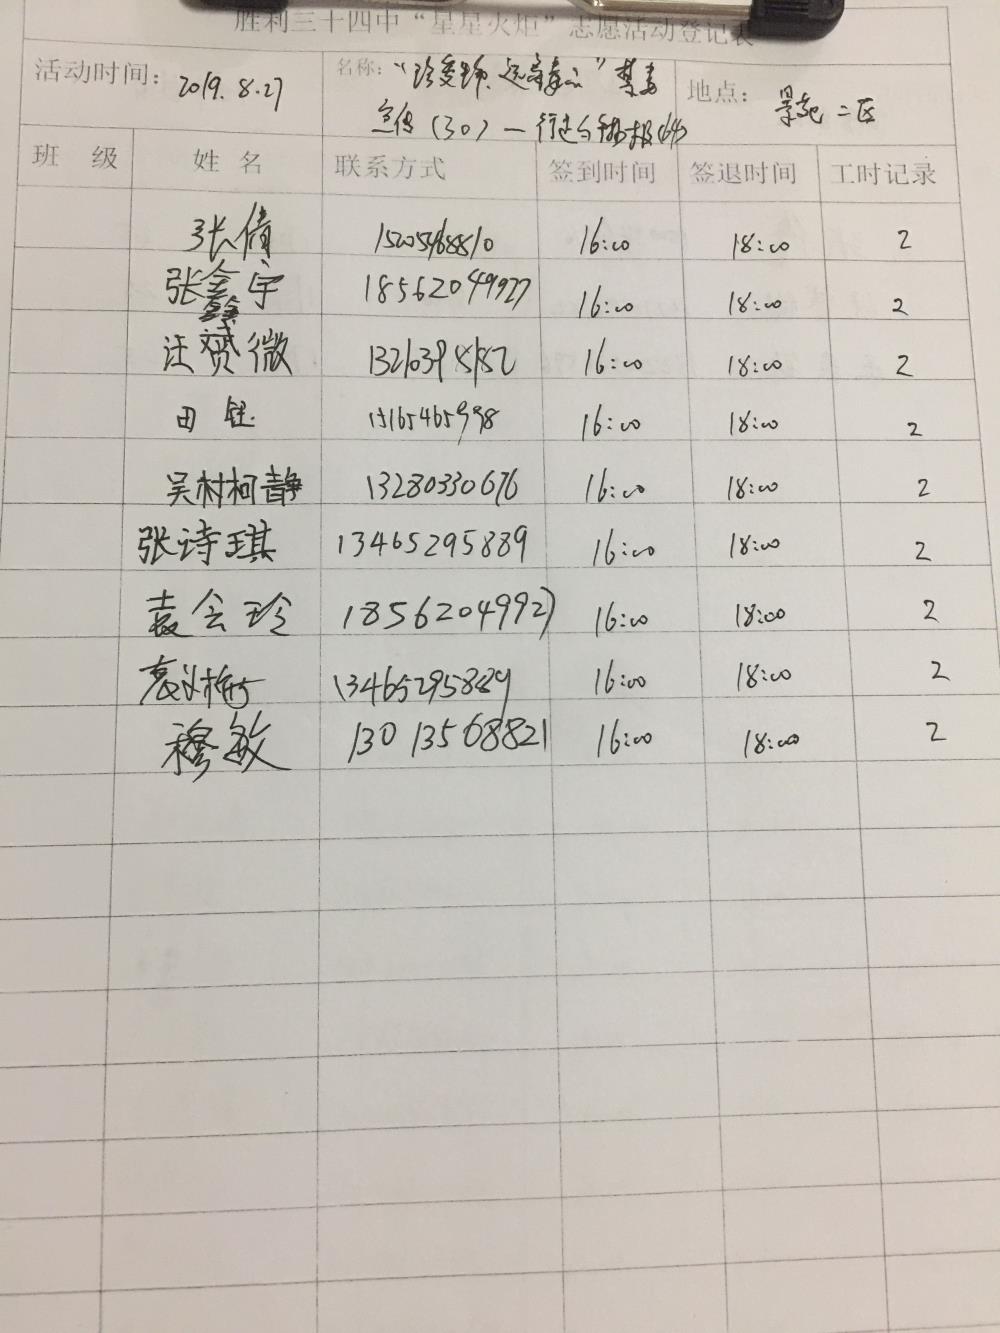 胜利三十四中“星星火炬”志愿活动登记表
活动时间: 2019.8.27 名称: “珍爱 远离毒品” 禁毒 地点: 景苑二区
宣传(30)一行进
班 级 姓 名 联系方式 签到时间 签退时间 工时记录
张倩 16:00 18:00 2
张鑫宇 18562049927 16:00 18:00 2
汪赟微 16:00 18:00 2
田 15165465998 16:00 18:00 2
吴村柯静 13280330676 16:00 18:00 2
张诗琪 13465295889 16:00 18:00 2
袁会玲 18562049927 16:00 18:00 2
13465295889 16:00 18:00 2
穆敏 13013568821 16:00 18:00 2